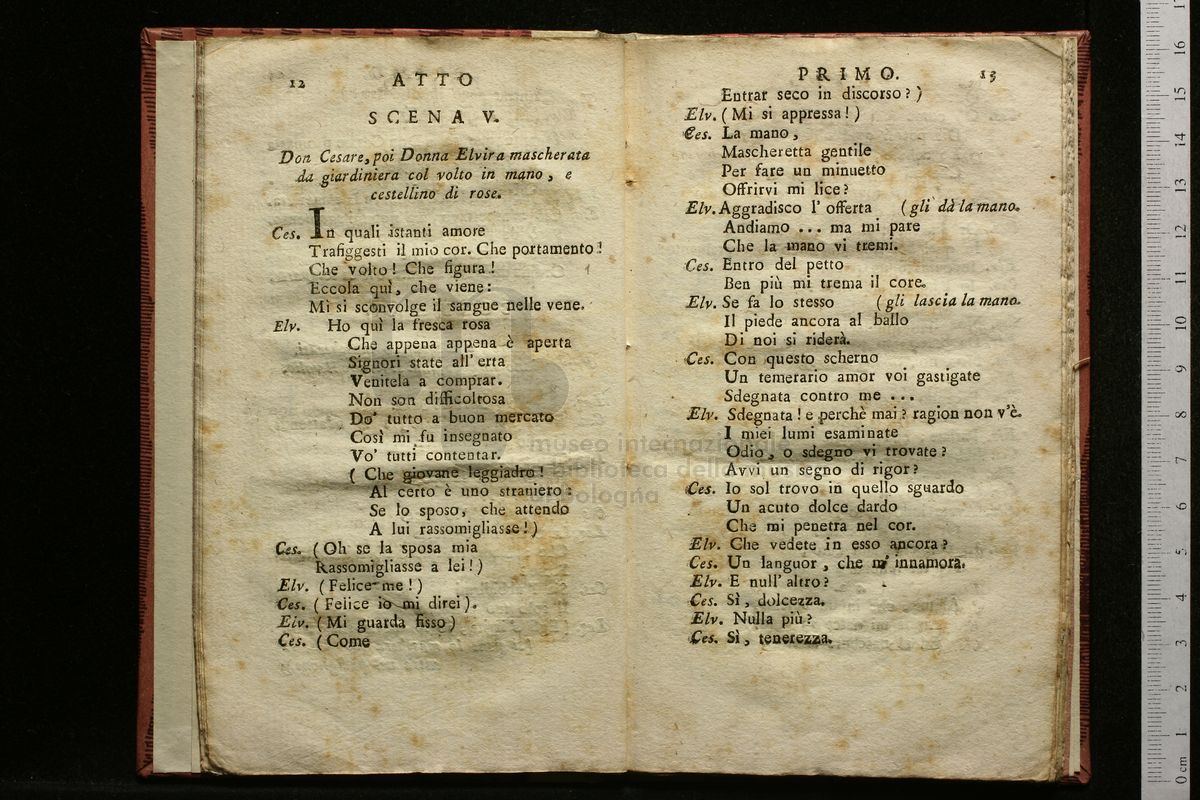 12 ATTO
SCENA V.
Don Cesare, poi Donna Elvira mascherata
da giardiniera col volto in mano, e
cestellino di rose.
Ces. In quali istanti amore
Trafiggesti il mio cor. Che portamento!
Che volto! Che figura!
Eccola quì, che viene:
Mi si sconvolge il sangue nelle vene.
Elv. Ho quì la fresca rosa
Che appena appena è aperta
Signori state all' erta
Venitela a comprar.
Non son difficoltosa
Do' tutto a buon mercato
Così mi fu insegnato
Vo' tutti contentar.
( Che giovane leggiadro!
Al certo è uno straniero:
Se lo sposo, che attendo
A lui rassomigliasse!)
Ces. (Oh se la sposa mia
Rassomigliasse a lei!)
Elv. (Felice me!)
Ces. (Felice io mi direi).
Elv. (Mi guarda fisso)
Ces. (Come
PRIMO. 13
Entrar seco in discorso?)
Elv. (Mi si appressa!)
Ces. La mano,
Mascheretta gentile
Per fare un minuetto
Offrirvi mi lice?
Elv. Aggradisco l' offerta (gli dà la mano.
Andiamo ... ma mi pare
Che la mano vi tremi.
Ces. Entro del petto
Ben più mi trema il core.
Elv. Se fa lo stesso (gli lascia la mano.
Il piede ancora al ballo
Di noi si riderà.
Ces. Con questo scherno
Un temerario amor voi gastigate
Sdegnata contro me ...
Elv. Sdegnata! e perchè mai? ragion non v'è.
I miei lumi esaminate
Odio, o sdegno vi trovate?
Avvi un segno di rigor?
Ces. Io sol trovo in quello sguardo
Un acuto dolce dardo
Che mi penetra nel cor.
Elv. Che vedete in esso ancora?
Ces. Un languor, che m' innamora.
Elv. E null' altro?
Ces. Sì, dolcezza.
Elv. Nulla più?
Ces. Sì, tenerezza.
museo internazionale
biblioteca della
bologna
0 cm 1 2 3 4 5 6 7 8 9 10 11 12 13 14 15 16